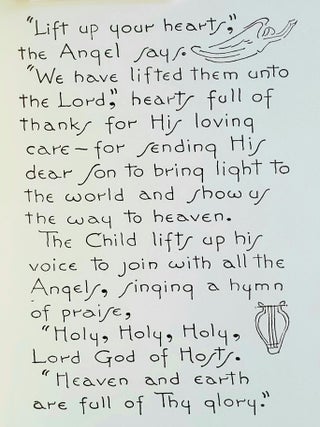 "Lift up your hearts,"
the Angel says.
"We have lifted them unto
the Lord," hearts full of
thanks for His loving
care — for sending His
dear Son to bring light to
the world and show us
the way to heaven.
The Child lifts up his
voice to join with all the
Angels, singing a hymn
of praise,
"Holy, Holy, Holy,
Lord God of Hosts.
"Heaven and earth
are full of Thy glory."